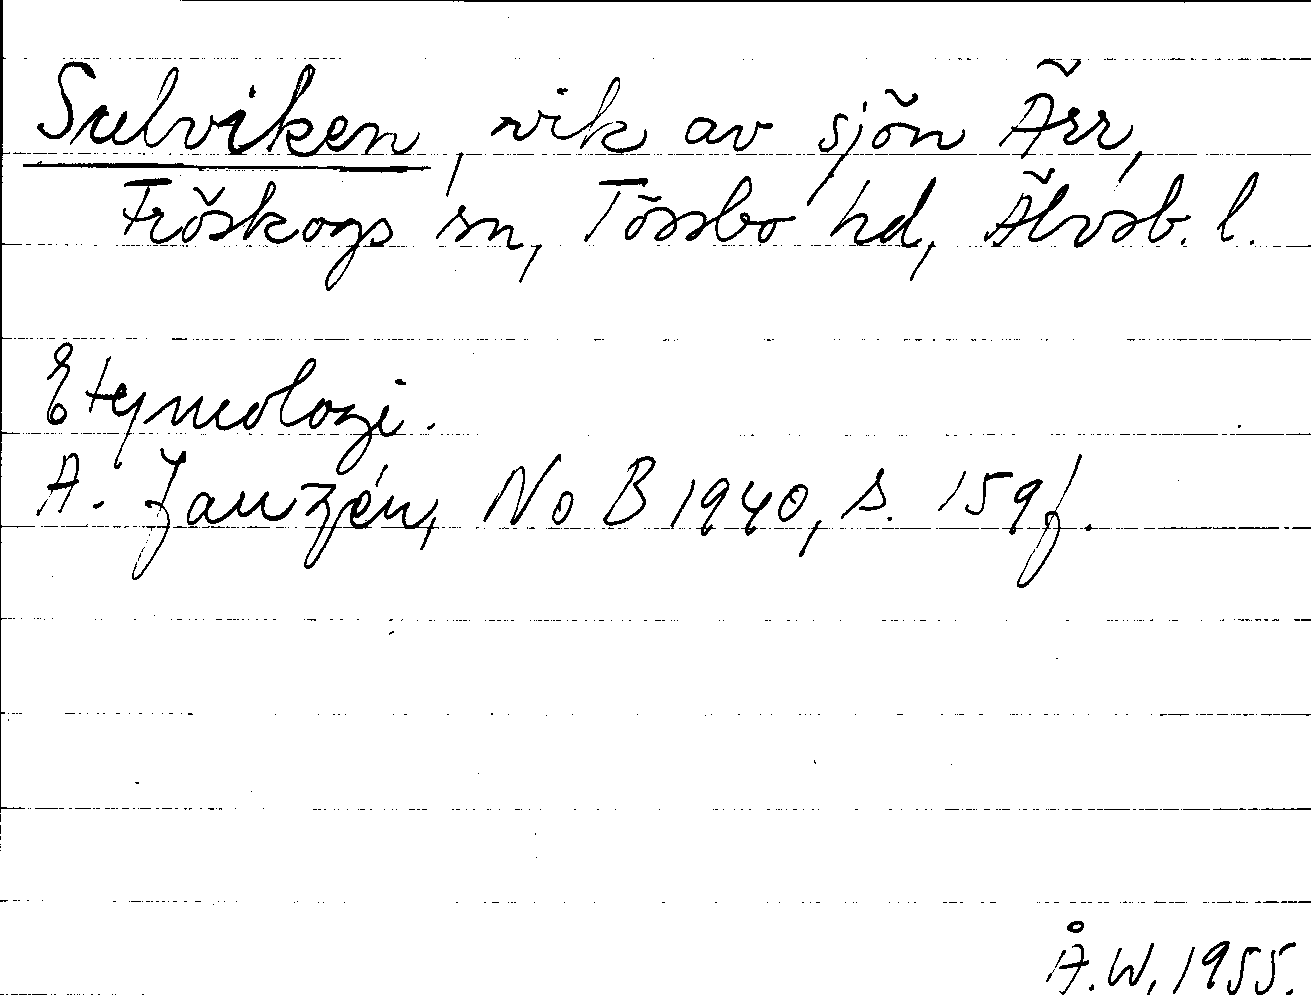 Sulviken, vik av sjön Ärr,
Fröskogs sn, Tössbo hd, Älvsb. l.
Etymologi.
A. Janzén, NoB 1940, s. 159f.
Å.W. 1955.